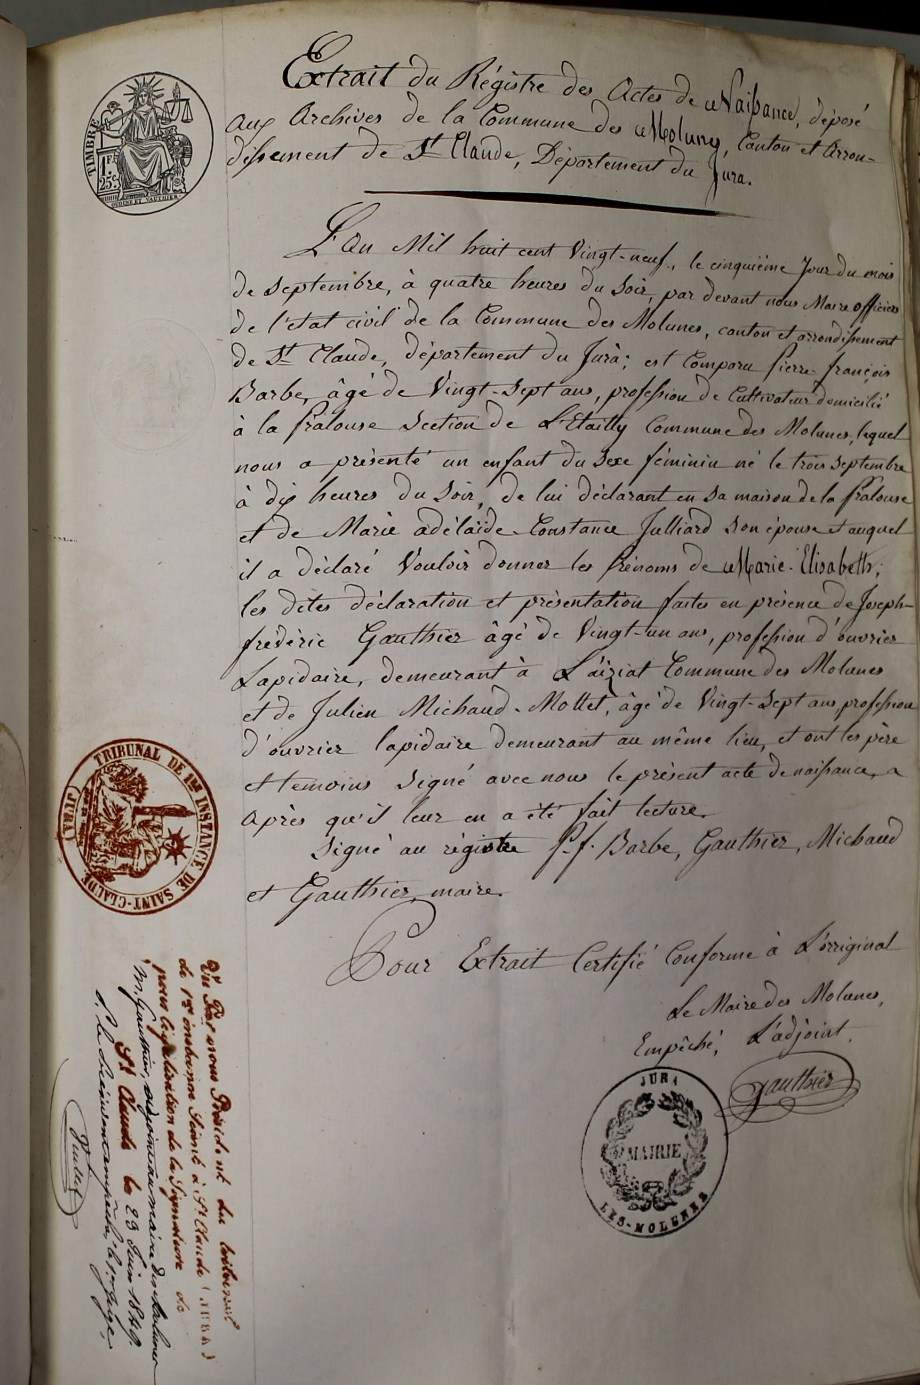 TIMBRE
1 Fr
25 c.
Extrait du Régistre des Actes de Naissance, déposé
aux Archives de la Commune des Molunes, Canton et Arron-
dissement de St. Claude, Département du Jura.
L'an Mil huit cent Vingt-neuf, le cinquième Jour du mois
de Septembre, à quatre heures du Soir, par devant nous Maire officier
de l'etat civil de la Commune des Molunes, canton et arrondissement
de St. Claude, département du Jura; est Comparu Pierre-françois
Barbe, âgé de Vingt-Sept ans, profession de Cultivateur domicilié
à la fralouse Section de L'Etailly Commune des Molunes, lequel
nous a présenté un enfant du Sexe féminin né le trois Septembre
à dix heures du Soir, de lui déclarant en Sa maison de la fralouse
et de Marie adélaïde Constance Julliard Son épouse et auquel
il a déclaré Vouloir donner les Prénoms de Marie-Elisabeth;
les dites déclaration et présentation faites en présence de Joseph-
frédéric Gauthier âgé de Vingt-un ans, profession d'ouvrier
Lapidaire, demeurant à L'aiziat Commune des Molunes
et de Julien Michaud-Mottet, âgé de Vingt-Sept ans, profession
d'ouvrier lapidaire demeurant au même lieu, et ont les père
et temoins Signé avec nous le présent acte de naissance, a
après qu'il leur en a été fait lecture.
Signé au régistre P.f. Barbe, Gauthier, Michaud
et Gauthier, maire.
Pour Extrait Certifié Conforme à L'orriginal
Le Maire des Molunes,
Empêché, L'adjoint.
Gauthier
JURA
MAIRIE
LES-MOLUNES
TRIBUNAL DE 1ère INSTANCE DE SAINT-CLAUDE (JURA)
Vu Par nous Président du tribunal
de 1re instance Séant à St Claude (JURA)
pour légalisation de la Signature de
M. Gauthier, adjoint au maire des Molunes
St Claude le 23 Juin 1849.
P. le Président empêché, le 1er Juge,